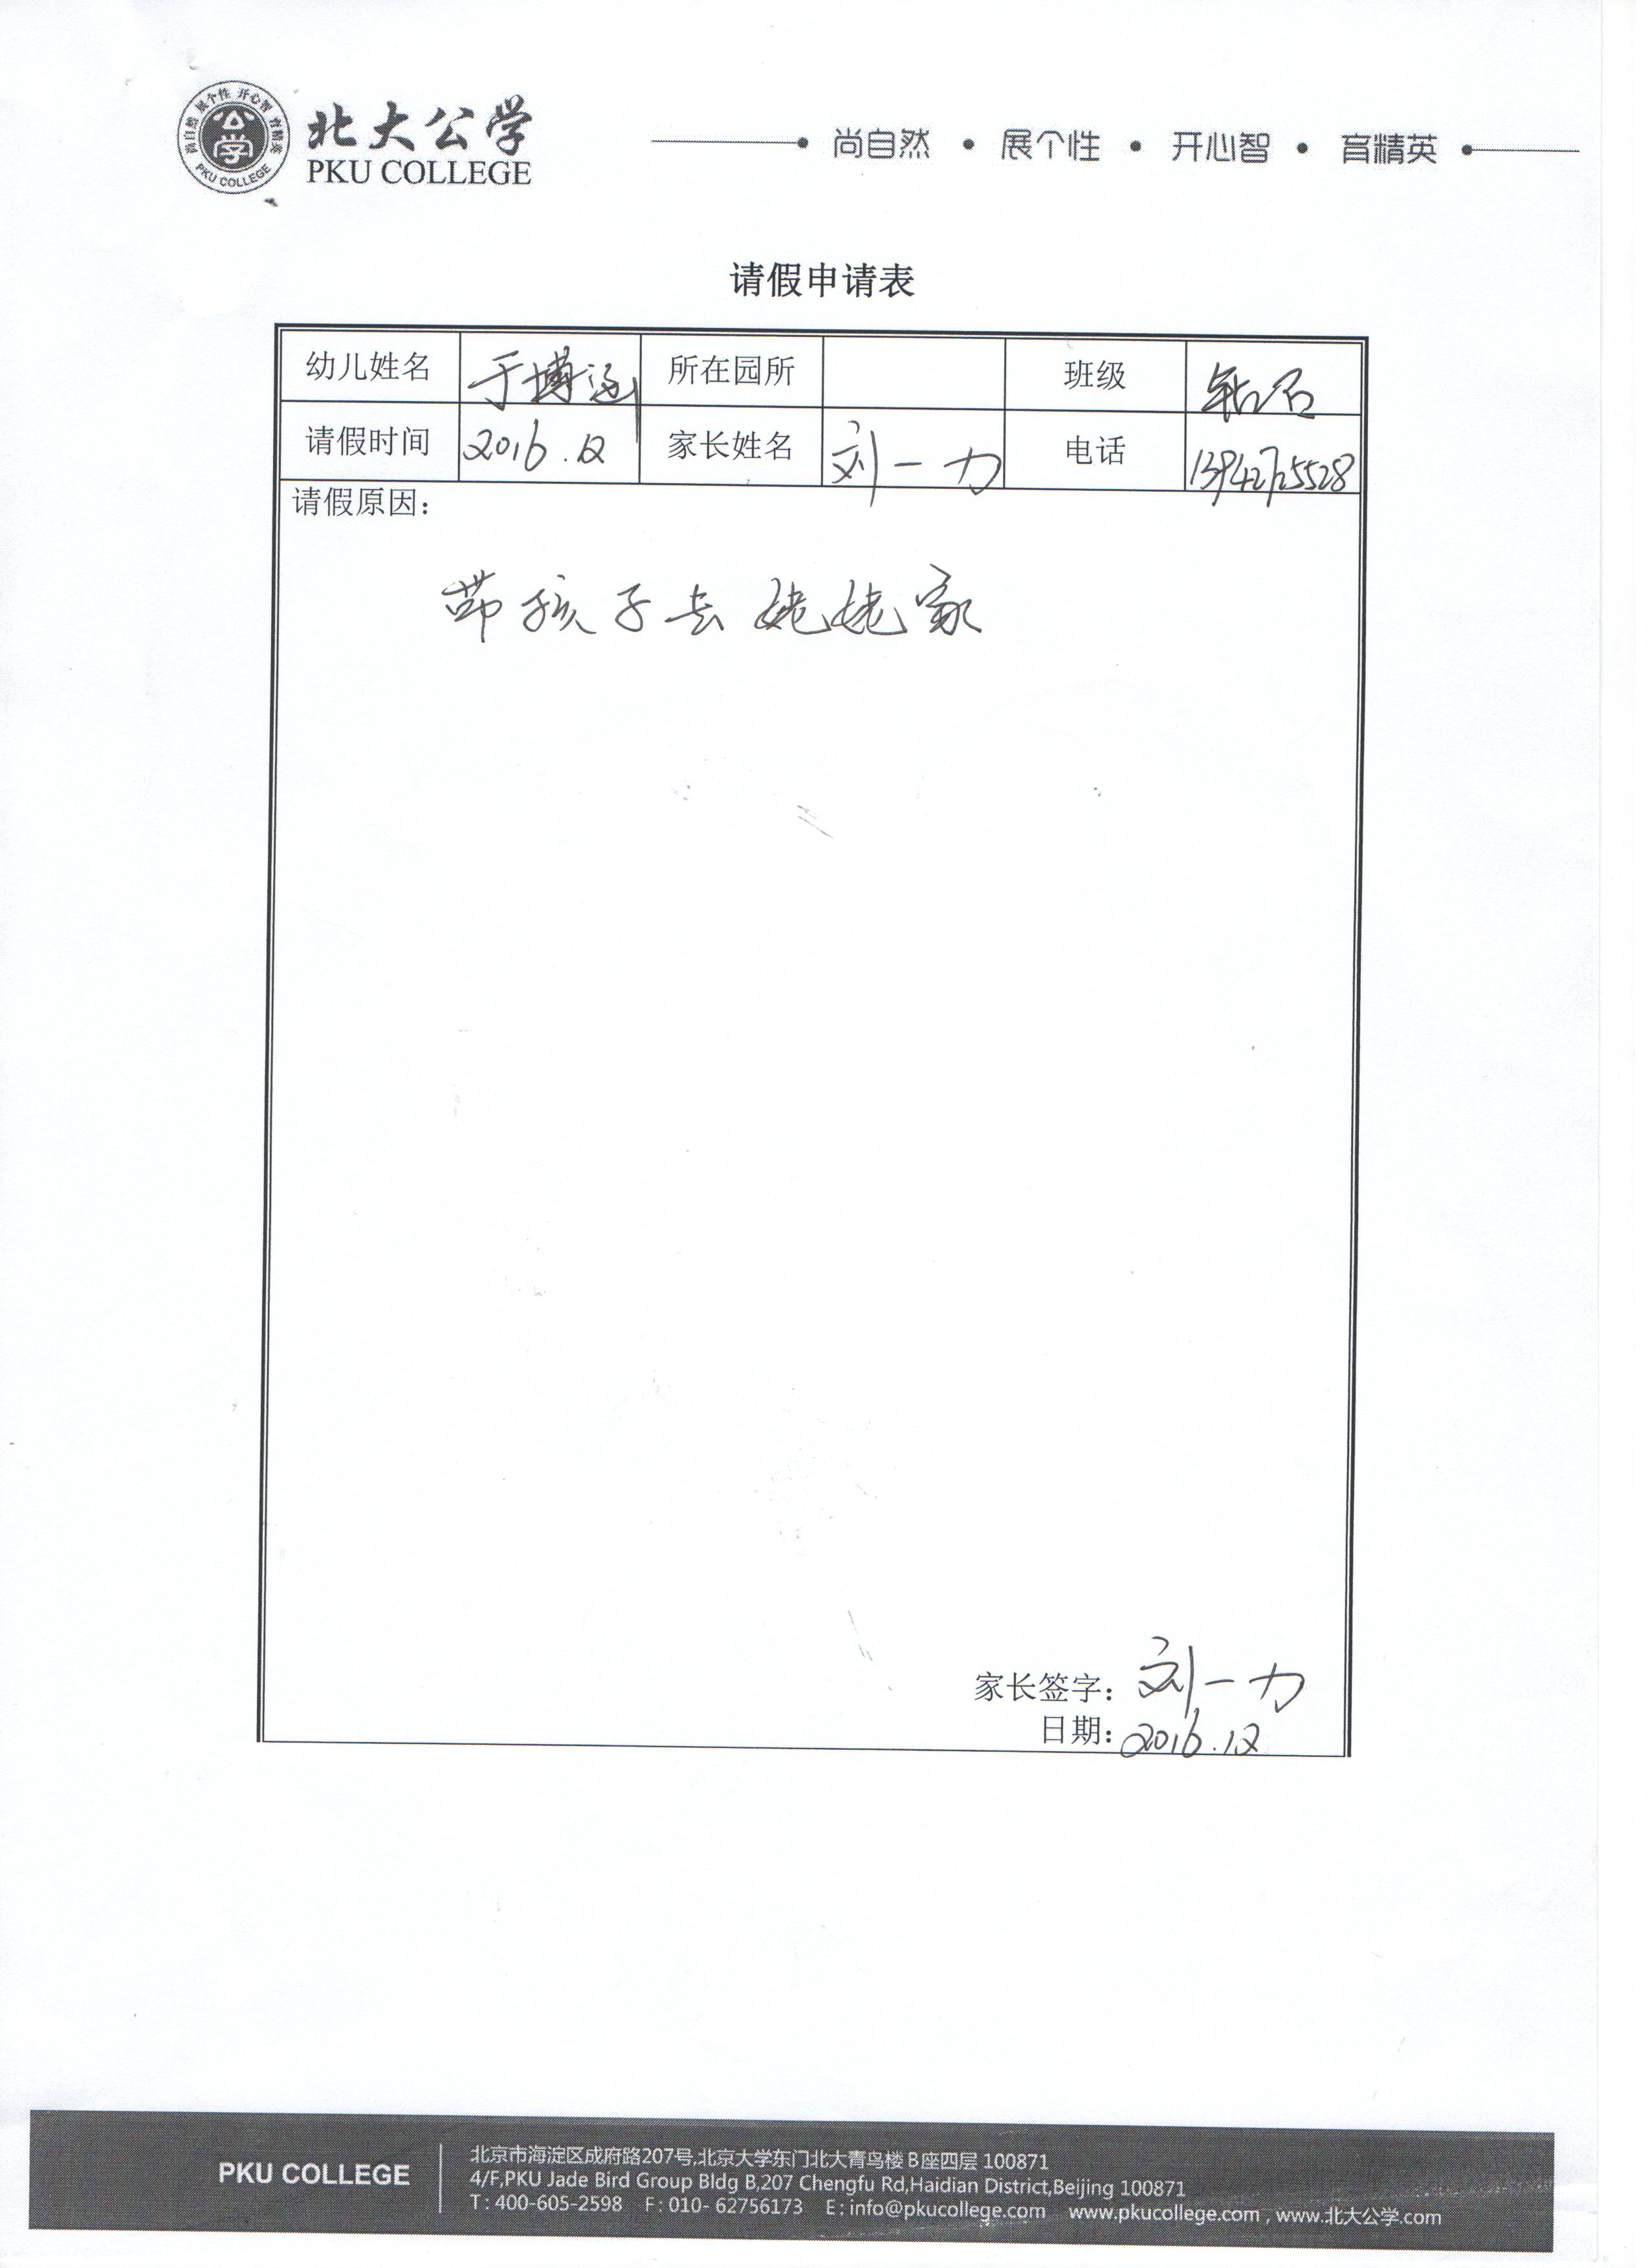 尚自然 展个性 开心智 育精英
公学
PKU COLLEGE
北大公学
PKU COLLEGE
尚自然 • 展个性 • 开心智 • 育精英
请假申请表
幼儿姓名 于博涵 所在园所 班级 钻石
请假时间 2016.12 家长姓名 刘一力 电话 13942725528
请假原因：
带孩子去姥姥家
家长签字：刘一力
日期：2016.12
PKU COLLEGE
北京市海淀区成府路207号,北京大学东门北大青鸟楼B座四层 100871
4/F,PKU Jade Bird Group Bldg B,207 Chengfu Rd,Haidian District,Beijing 100871
T：400-605-2598 F：010- 62756173 E：info@pkucollege.com www.pkucollege.com , www.北大公学.com